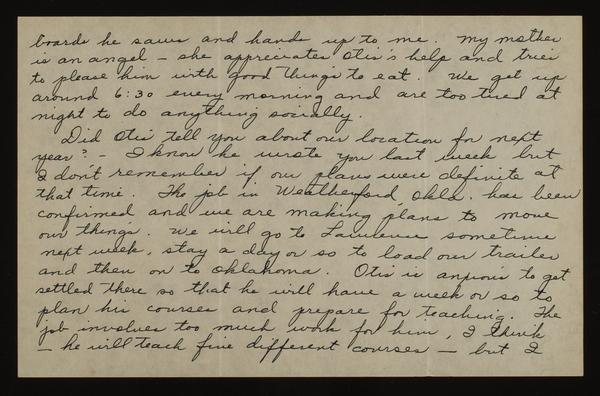 boards he saws and hands up to me. My mother
is an angel – she appreciates Otis's help and tries
to please him with good things to eat. We get up
around 6:30 every morning and are too tired at
night to do anything socially.
Did Otis tell you about our location for next
year? – I know he wrote you last week but
I don't remember if our plans were definite at
that time. The job in Weatherford, Okla. has been
confirmed and we are making plans to move
our things. We will go to Lawrence sometime
next week, stay a day or so to load our trailer
and then on to Oklahoma. Otis is anxious to get
settled there so that he will have a week or so to
plan his courses and prepare for teaching. The
job involves too much work for him, I think
– he will teach five different courses – but I